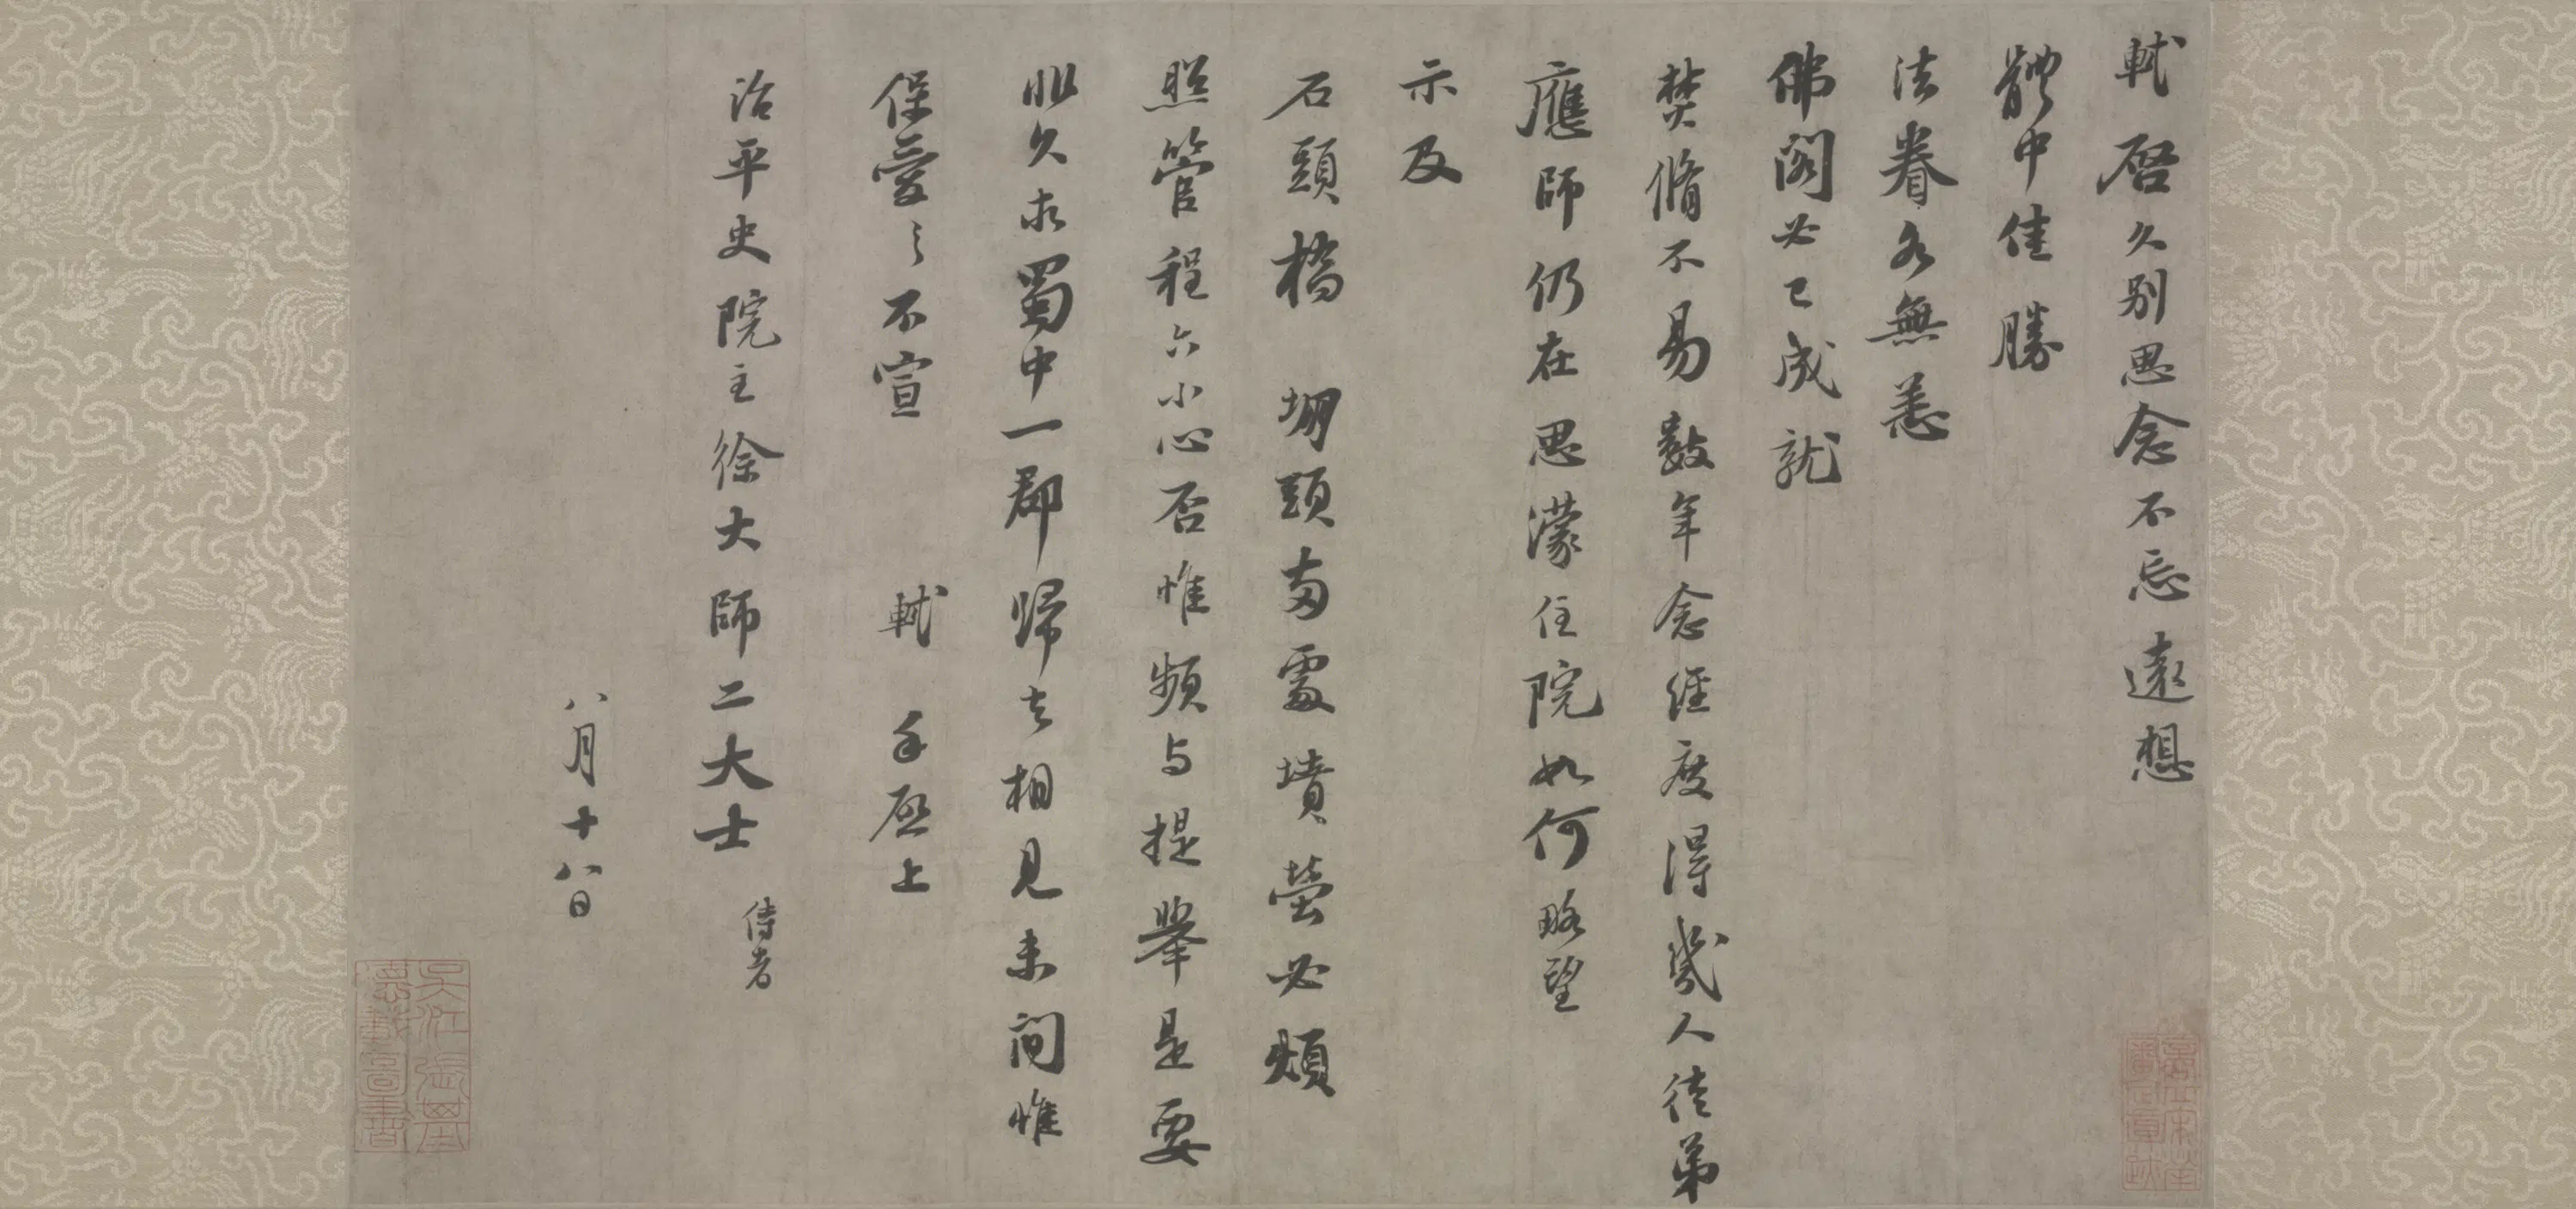 軾啓久别思念不忘遠想
體中佳勝
法眷各無恙
佛閣必已成就
焚脩不易數年念經度得幾人徒弟
應師仍在思濛住院如何略望
示及
石頭橋 堋頭兩處墳塋必煩
照管程六小心否惟頻与提舉是要
非久求蜀中一郡歸去相見未間惟
保愛之不宣 軾 手啓上
治平史院主徐大師二大士 侍者
八月十八日